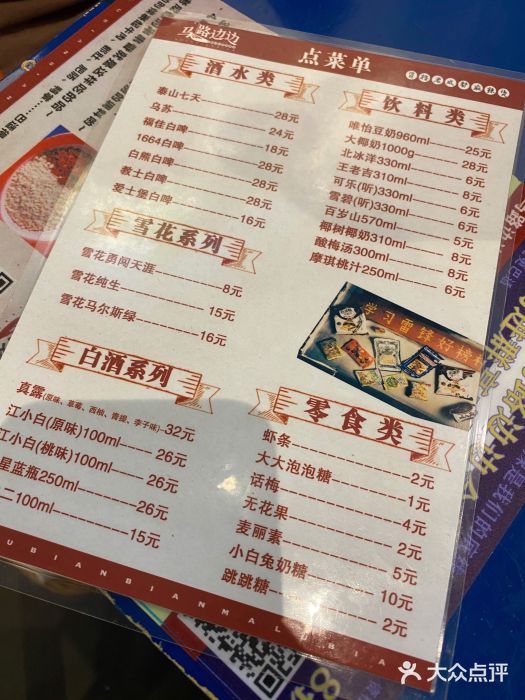 马路边边
点菜单
酒水类
泰山七天 28元
乌苏 24元
福佳白啤 18元
1664白啤 28元
白熊白啤 28元
教士白啤 28元
爱士堡白啤 16元
雪花系列
雪花勇闯天涯 8元
雪花纯生 15元
雪花马尔斯绿 16元
白酒系列
真露(原味、草莓、西柚、青提、李子味) 32元
江小白(原味)100ml 26元
江小白(桃味)100ml 26元
星蓝瓶250ml 26元
二100ml 15元
饮料类
唯怡豆奶960ml 25元
大椰奶1000g 28元
北冰洋330ml 6元
王老吉310ml 8元
可乐(听)330ml 6元
雪碧(听)330ml 6元
百岁山570ml 5元
椰树椰奶310ml 8元
酸梅汤300ml 8元
摩琪桃汁250ml 6元
学习雷锋好榜
零食类
虾条 2元
大大泡泡糖 1元
话梅 4元
无花果 2元
麦丽素 5元
小白兔奶糖 10元
跳跳糖 2元
UBIANBIANMAL
BIA
大众点评